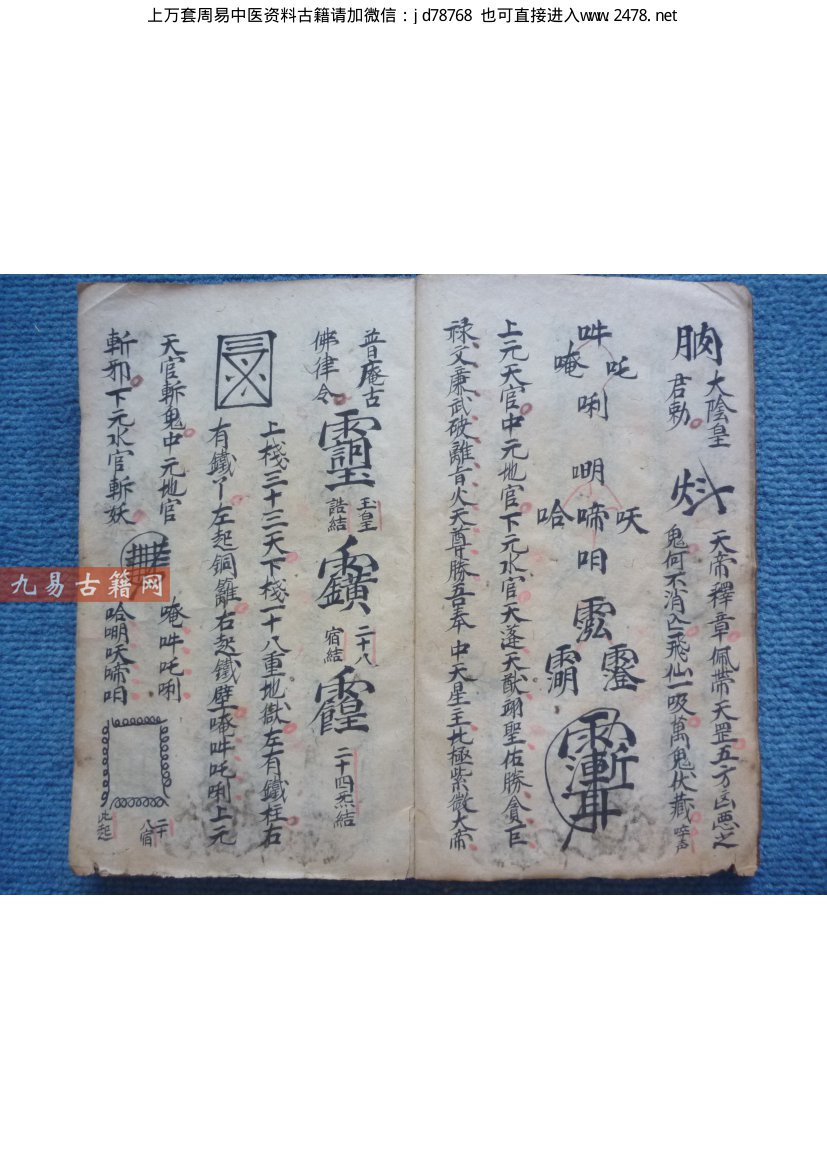 上万套周易中医资料古籍请加微信：jd78768 也可直接进入www.2478.net
大陰皇
君勅
天帝釋章佩帶天罡五方凶惡之
鬼何不消亡飛仙一吸萬鬼伏藏
吽
唵 吒
唎
嗍
哈 啼 呋
呬
上元天官中元地官下元水官天蓬天猷翊聖佑勝貪巨
禄文廉武破離百火天尊勝吾奉中天星主北極紫微大帝
普庵古
佛律令
玉皇
誥結
二十八
宿結
二十四炁結
上棧三十三天下棧一十八重地獄左有鐵柱右
有鐵丫左起銅籬右起鐵壁唵吽吒唎上元
天官斬鬼中元地官
唵吽吒唎
斬邪下元水官斬妖
哈嗍呋啼呬
二十
八宿
此起
九易古籍网